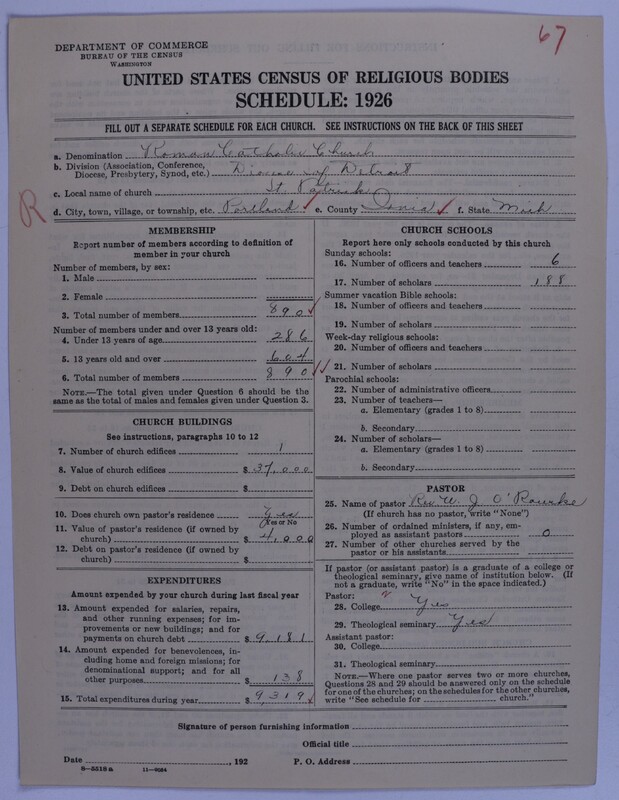 67
DEPARTMENT OF COMMERCE
BUREAU OF THE CENSUS
WASHINGTON
UNITED STATES CENSUS OF RELIGIOUS BODIES
SCHEDULE: 1926
FILL OUT A SEPARATE SCHEDULE FOR EACH CHURCH. SEE INSTRUCTIONS ON THE BACK OF THIS SHEET
a. Denomination Roman Catholic Church
b. Division (Association, Conference, Diocese, Presbytery, Synod, etc.) Diocese of Detroit
c. Local name of church St. Patrick
R
d. City, town, village, or township, etc. Portland e. County Ionia f. State Mich
MEMBERSHIP
Report number of members according to definition of
member in your church
Number of members, by sex:
1. Male
2. Female
3. Total number of members 890
Number of members under and over 13 years old:
4. Under 13 years of age 286
5. 13 years old and over 604
6. Total number of members 890
NOTE.—The total given under Question 6 should be
same as the total of males and females given under Question 3.
CHURCH BUILDINGS
See instructions, paragraphs 10 to 12
7. Number of church edifices 1
8. Value of church edifices $ 37,000
9. Debt on church edifices $
10. Does church own pastor's residence Yes
(Yes or No)
11. Value of pastor's residence (if owned by
church) $ 4,000
12. Debt on pastor's residence (if owned by
church) $
EXPENDITURES
Amount expended by your church during last fiscal year
13. Amount expended for salaries, repairs,
and other running expenses; for im-
provements or new buildings; and for
payments on church debt $ 9,181
14. Amount expended for benevolences, in-
cluding home and foreign missions; for
denominational support; and for all
other purposes $ 138
15. Total expenditures during year $ 9,319
CHURCH SCHOOLS
Report here only schools conducted by this church
Sunday schools:
16. Number of officers and teachers 6
17. Number of scholars 188
Summer vacation Bible schools:
18. Number of officers and teachers
19. Number of scholars
Week-day religious schools:
20. Number of officers and teachers
21. Number of scholars
Parochial schools:
22. Number of administrative officers
23. Number of teachers—
a. Elementary (grades 1 to 8)
b. Secondary
24. Number of scholars—
a. Elementary (grades 1 to 8)
b. Secondary
PASTOR
25. Name of pastor Rev W. J. O'Rourke
(If church has no pastor, write "None")
26. Number of ordained ministers, if any, em-
ployed as assistant pastors 0
27. Number of other churches served by the
pastor or his assistants
If pastor (or assistant pastor) is a graduate of a college or
theological seminary, give name of institution below. (If
not a graduate, write "No" in the space indicated.)
Pastor:
28. College Yes
29. Theological seminary Yes
Assistant pastor:
30. College
31. Theological seminary
NOTE.—Where one pastor serves two or more churches,
Questions 28 and 29 should be answered only on the schedule
for one of the churches; on the schedules for the other churches,
write "See schedule for church."
Signature of person furnishing information
Official title
Date , 192 P. O. Address
8—5318 a 11—9054